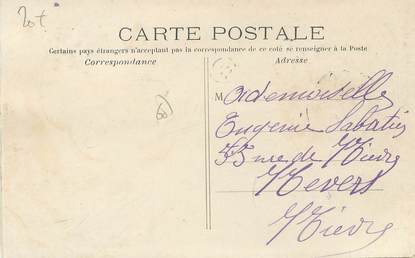 20f
CARTE POSTALE
Certains pays étrangers n'acceptant pas la correspondance de ce côté se renseigner à la Poste
Correspondance
Adresse
Mademoiselle
Eugenie Sabatier
33 rue de Nièvre
Nevers
Nièvre